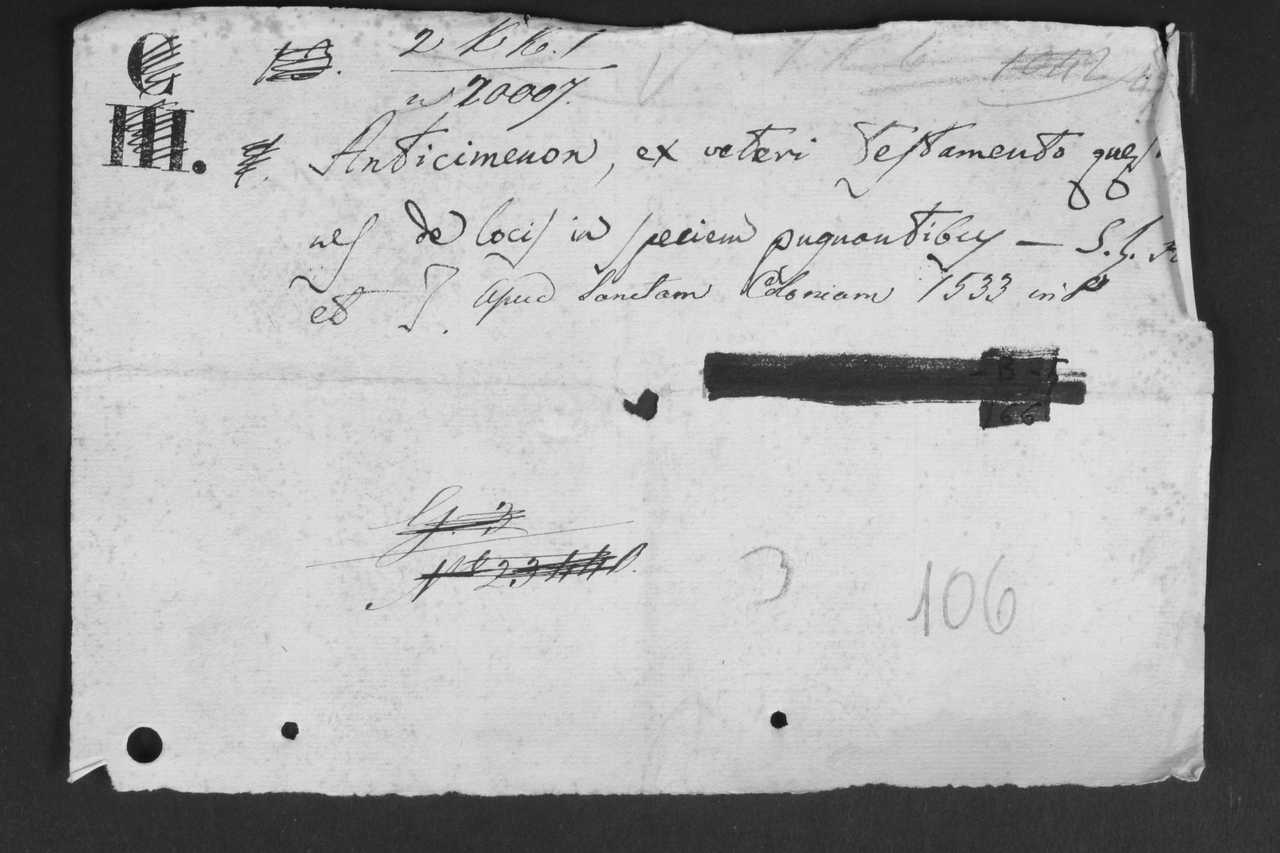 G
III.
2 KK. 1
n 20007.
Anticimenon, ex veteri Testamento quest
nes de locis in speciem pugnantibus — S. J.
et J. apud Sanctam Coloniam 1533 in 8
B
166
G. 3
3
106